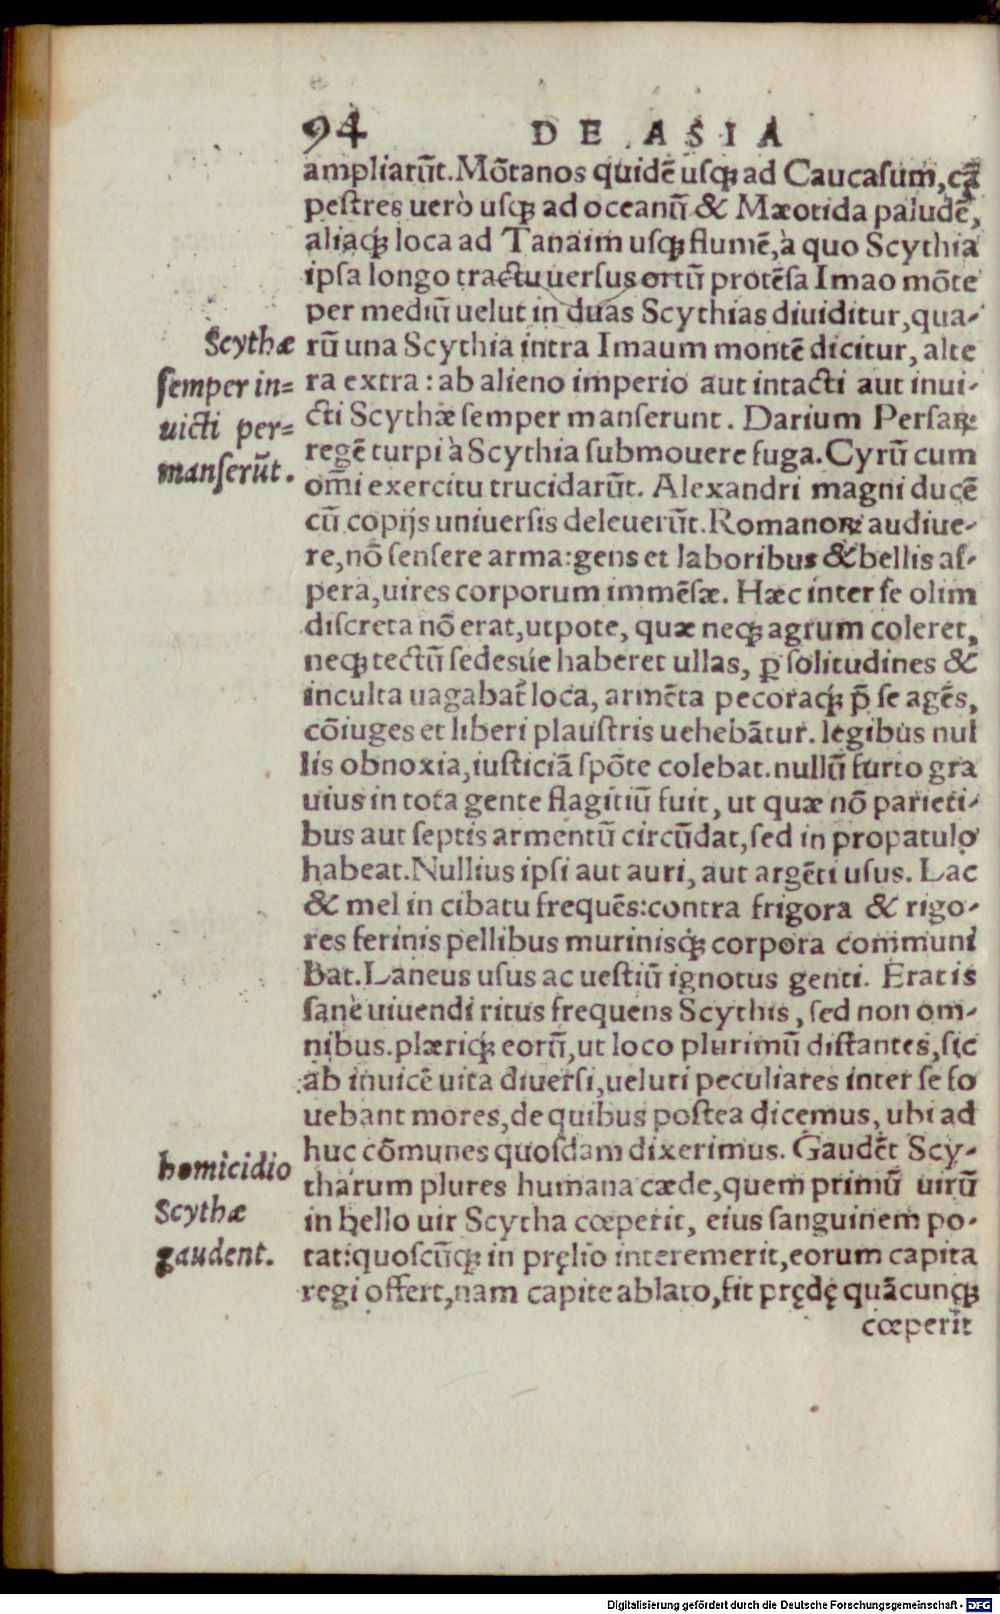 94 DE ASIA
ampliarūt. Mōtanos quidē usq; ad Caucasum, cā
pestres uerò usq; ad oceanū & Mæotida paludē,
aliaq́; loca ad Tanaim usq; flumē, à quo Scythia
ipsa longo tractu uersus ortū protēsa Imao mōte
per mediū uelut in duas Scythias diuiditur, qua-
rū una Scythia intra Imaum montē dicitur, alte
ra extra: ab alieno imperio aut intacti aut inui-
cti Scythæ semper manserunt. Darium Persaꝝ
regē turpi à Scythia submouere fuga. Cyrū cum
om̄i exercitu trucidarūt. Alexandri magni ducē
cū copijs uniuersis deleuerūt. Romanoꝝ audiue-
re, nō sensere arma: gens et laboribus & bellis as-
pera, uires corporum immēsæ. Hæc inter se olim
discreta nō erat, utpote, quæ neq; agrum coleret,
neq; tectū sedesúe haberet ullas, ꝑ solitudines &
inculta uagabat̄ loca, armēta pecoraq́; p̄ se agēs,
cōiuges et liberi plaustris uehebātur. legibus nul
lis obnoxia, iusticiā spōte colebat. nullū furto gra
uius in tota gente flagitiū fuit, ut quæ nō parieti-
bus aut septis armentū circūdat, sed in propatulo
habeat. Nullius ipsi aut auri, aut argēti usus. Lac
& mel in cibatu frequēs: contra frigora & rigo-
res ferinis pellibus murinisq́; corpora communi
bat. Laneus usus ac uestiū ignotus genti. Erat is
sanè uiuendi ritus frequens Scythis, sed non om-
nibus. plæriq́; eorū, ut loco plurimū distantes, sic
ab inuicē uita diuersi, ueluti peculiares inter se fo
uebant mores, de quibus postea dicemus, ubi ad
huc cōmunes quosdam dixerimus. Gaudēt Scy-
tharum plures humana cæde, quem primū uirū
in bello uir Scytha cœperit, eius sanguinem po-
tat: quoscūq; in pręlio interemerit, eorum capita
regi offert, nam capite ablato, fit prędę quācunq;
cœperit
Scythæ
semper in=
uicti per=
manserūt.
homicidio
Scythæ
gaudent.
Digitalisierung gefördert durch die Deutsche Forschungsgemeinschaft - DFG